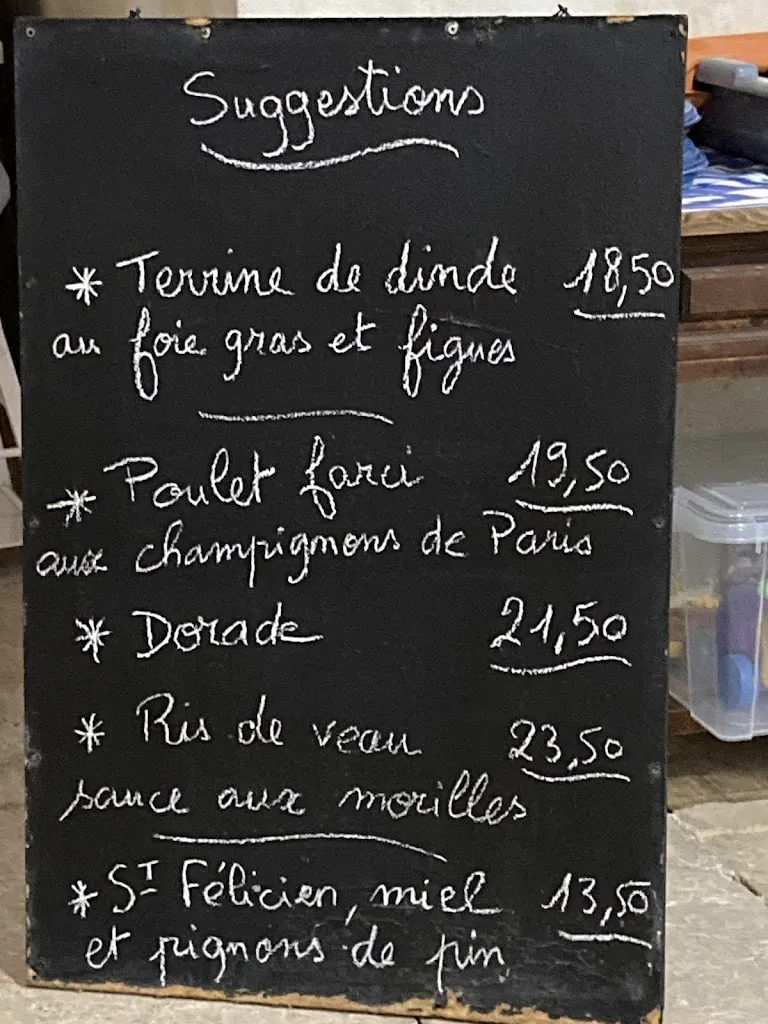 Suggestions
* Terrine de dinde 18,50
au foie gras et figues
* Poulet farci 19,50
aux champignons de Paris
* Dorade 21,50
* Ris de veau 23,50
sauce aux morilles
* ST Félicien, miel 13,50
et pignons de pin